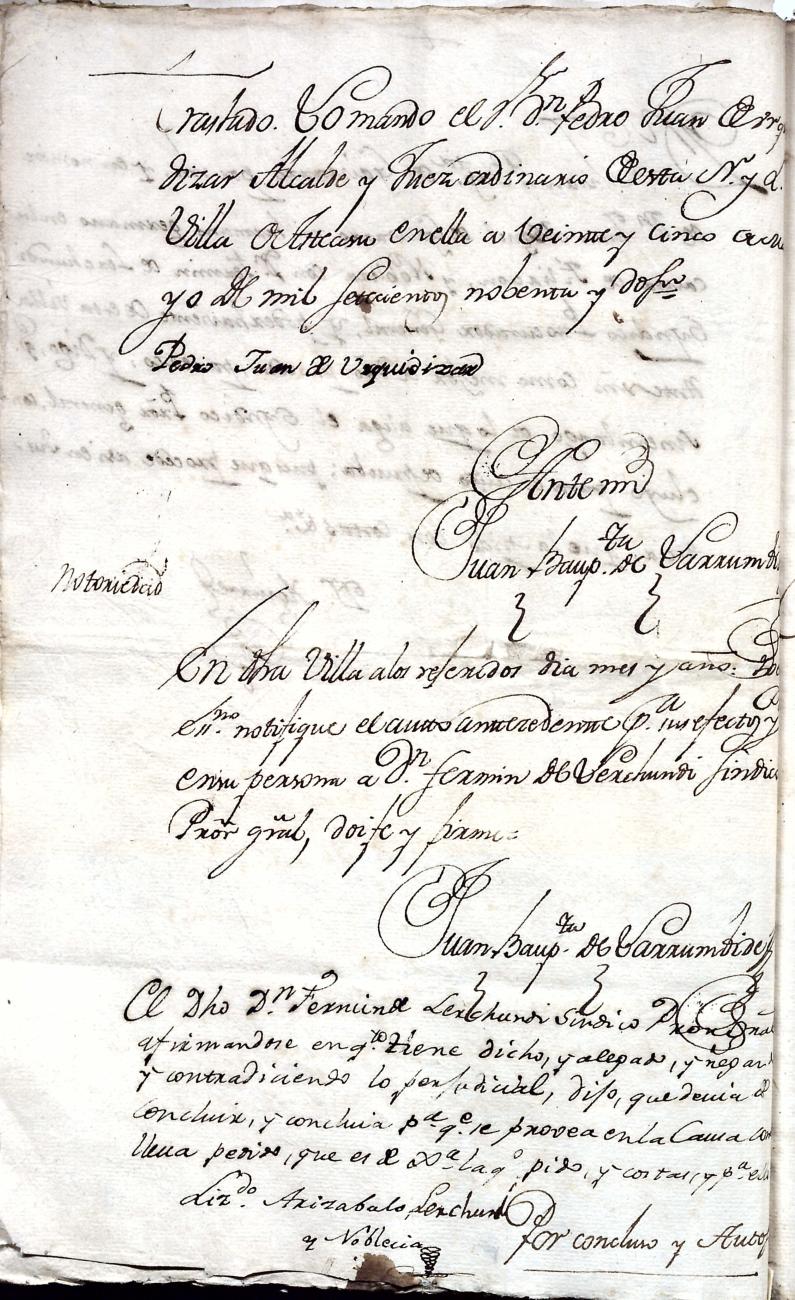 Traslado. Lo mando el Sr. Dn. Pedro Juan de Urqui
dizar Alcalde y Juez ordinario de esta N. y L.
Villa de Azcona en ella a Veinte y cinco de Ma
yo de mil setecientos nobenta y dos
Pedro Juan de Urquidizar
Ante mi
Juan Baup.ta de Larrumbi
Notoriedad
En dha Villa a los referidos dia mes y año: Yo el
Ess.no notifique el auto antezedente p.a sus efectos y
en su persona a Dn. Fermin de Lerchundi sindico
Pror gral, doi fe y firme
Juan Baup.ta de Larrumbide
El Dho Dn Fermin de Lerchundi Sindico Pror Gral
afirmandose en q.to tiene dicho, y alegado, y negando
y contradiciendo lo perjudicial, dijo, que devia de
concluir, y concluia p.a q.e se provea en la Causa como
lleva pedido, que es de Jus.a la q.e pido, y costas, y p.a ello
Liz.do Arizabalo Lerchundi
y Noblecia
Por concluso y Autos